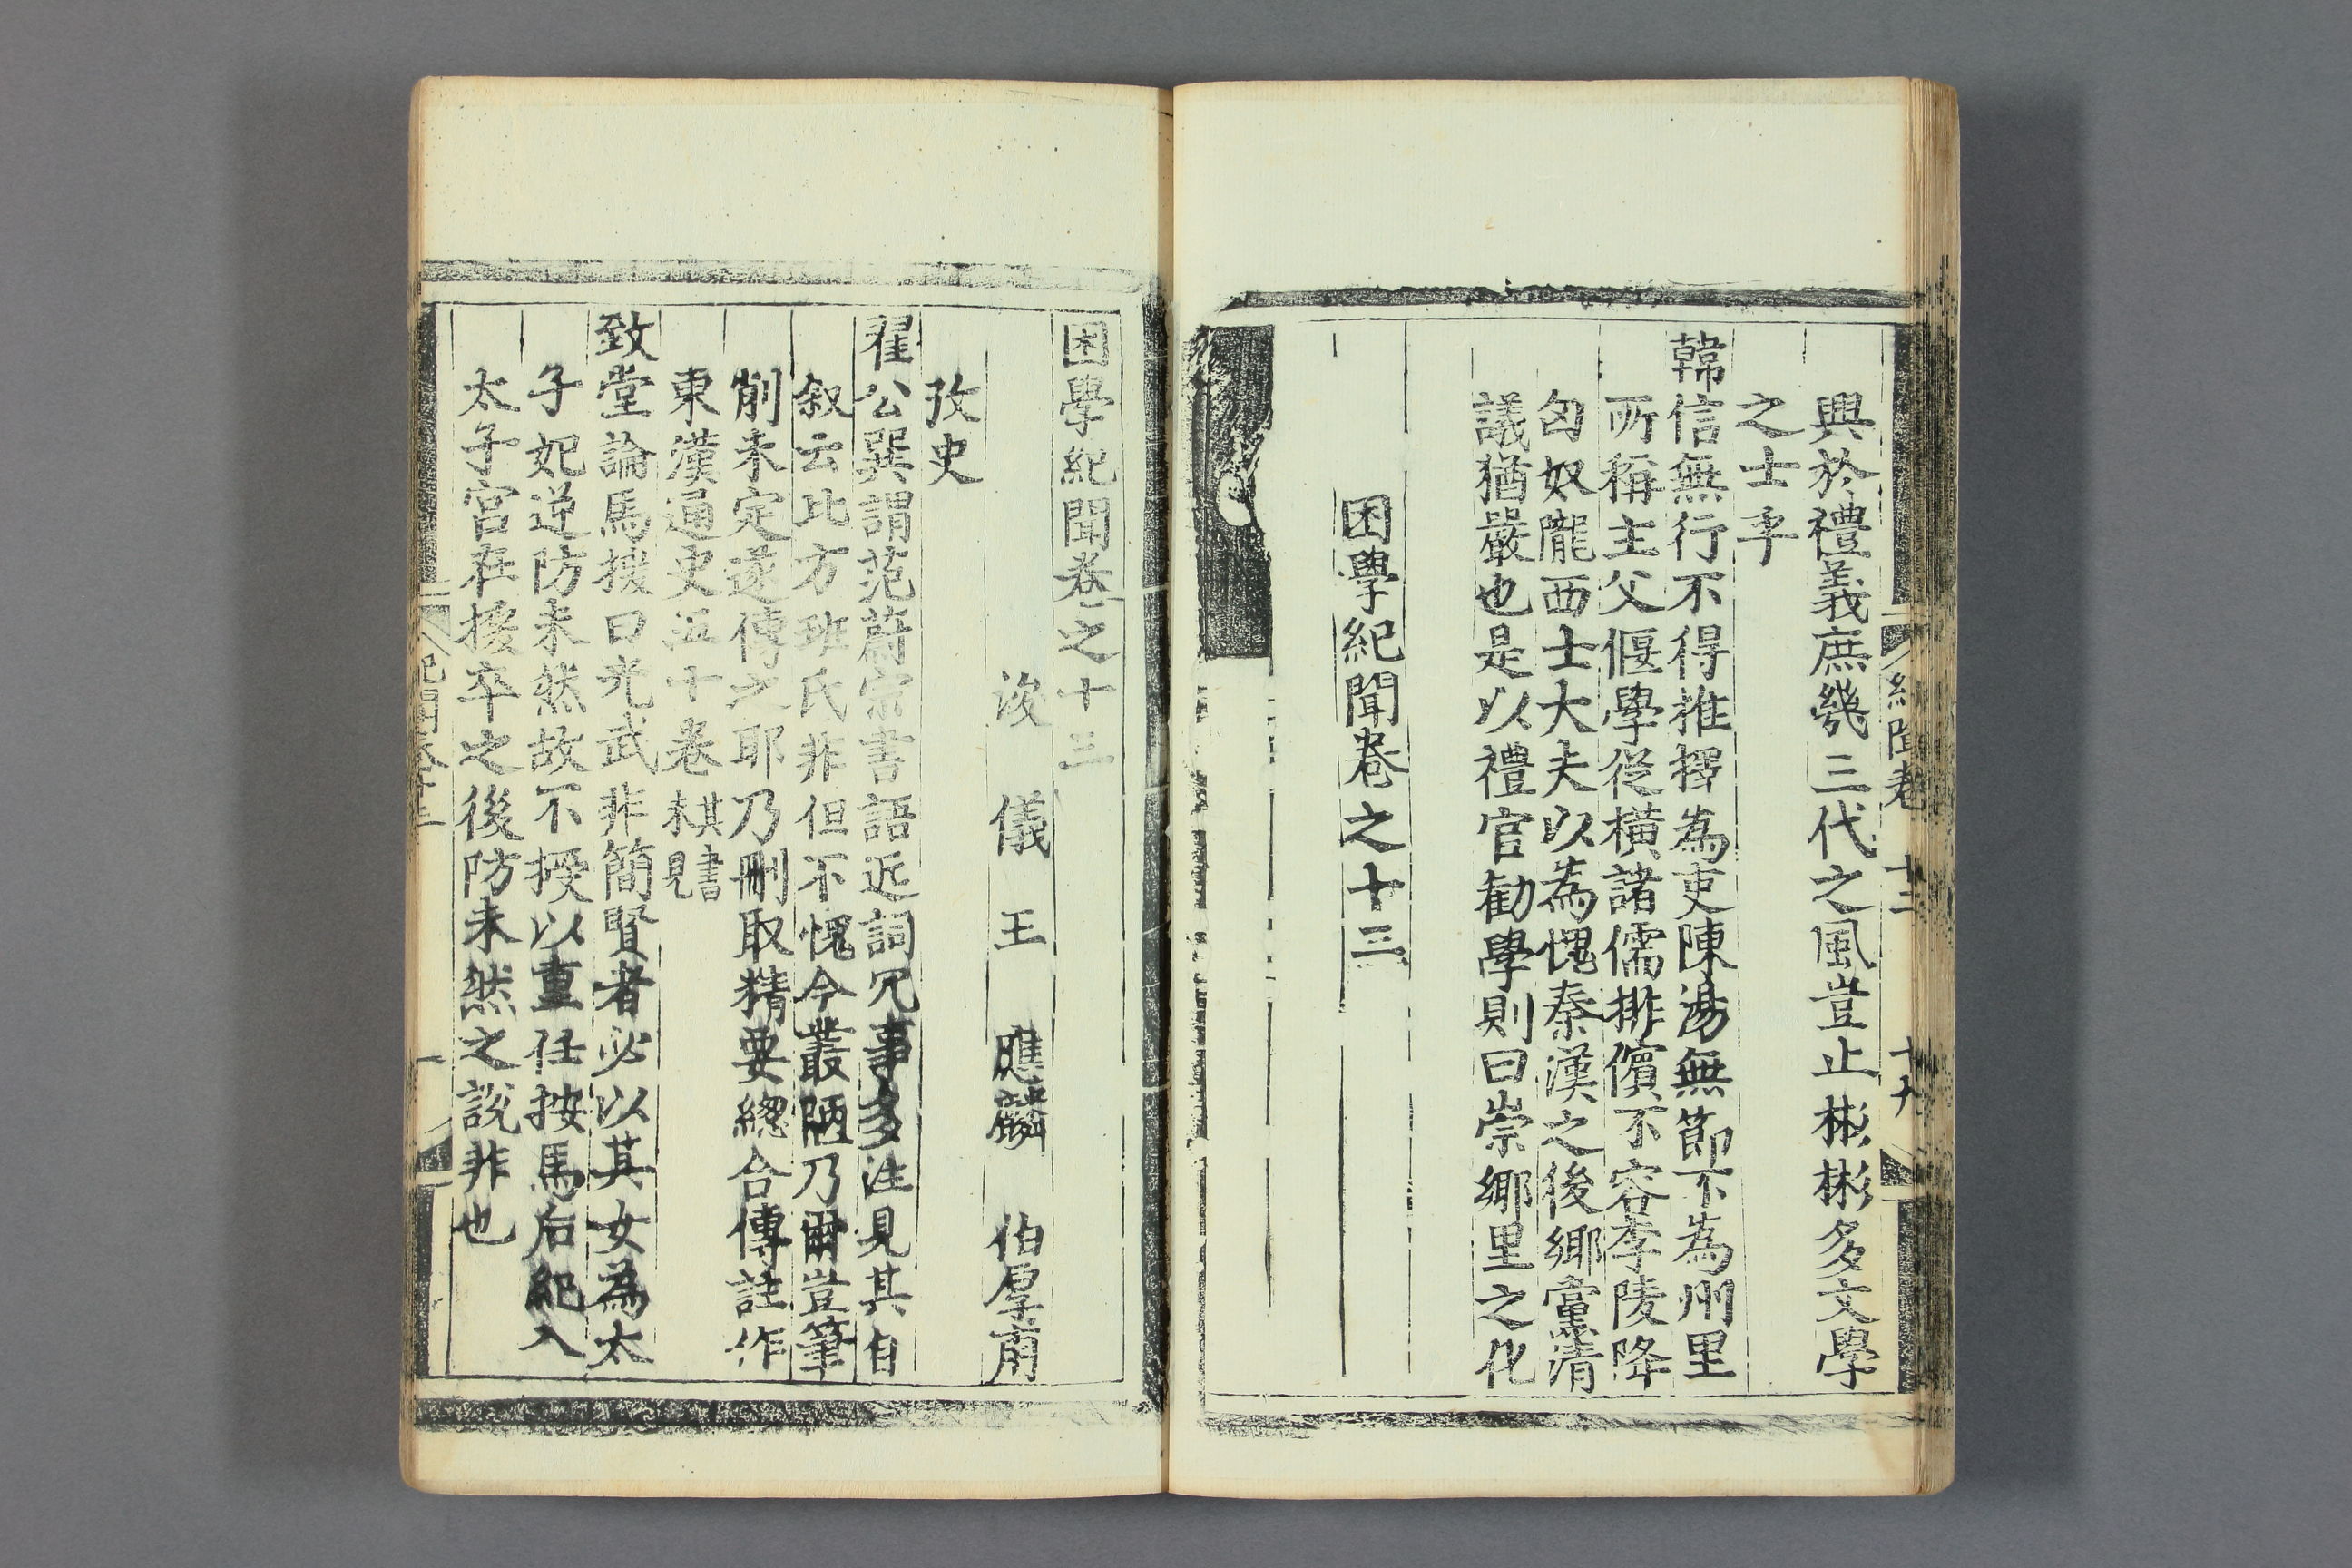 興於禮義庶幾三代之風豈止彬彬多文學
之士乎
韓信無行不得推擇為吏陳湯無節不為州里
所稱主父偃學從橫諸儒排儐不容李陵降
匈奴隴西士大夫以為愧秦漢之後鄉黨清
議猶嚴也是以禮官勸學則曰崇鄉里之化
困學紀聞卷之十三
紀聞卷 十二 十九
困學紀聞卷之十三
浚 儀 王 應麟 伯厚甫
攷史
翟公巽謂范蔚宗書語近詞冗事多注見其自
叙云比方班氏非但不愧今叢陋乃爾豈筆
削未定遂傳之耶乃刪取精要緫合傳註作
東漢通史五十卷 未見其書
致堂論馬援曰光武非簡賢者必以其女為太
子妃逆防未然故不授以重任按馬后紀入
太子宫在援卒之後防未然之說非也
紀聞卷十三 一